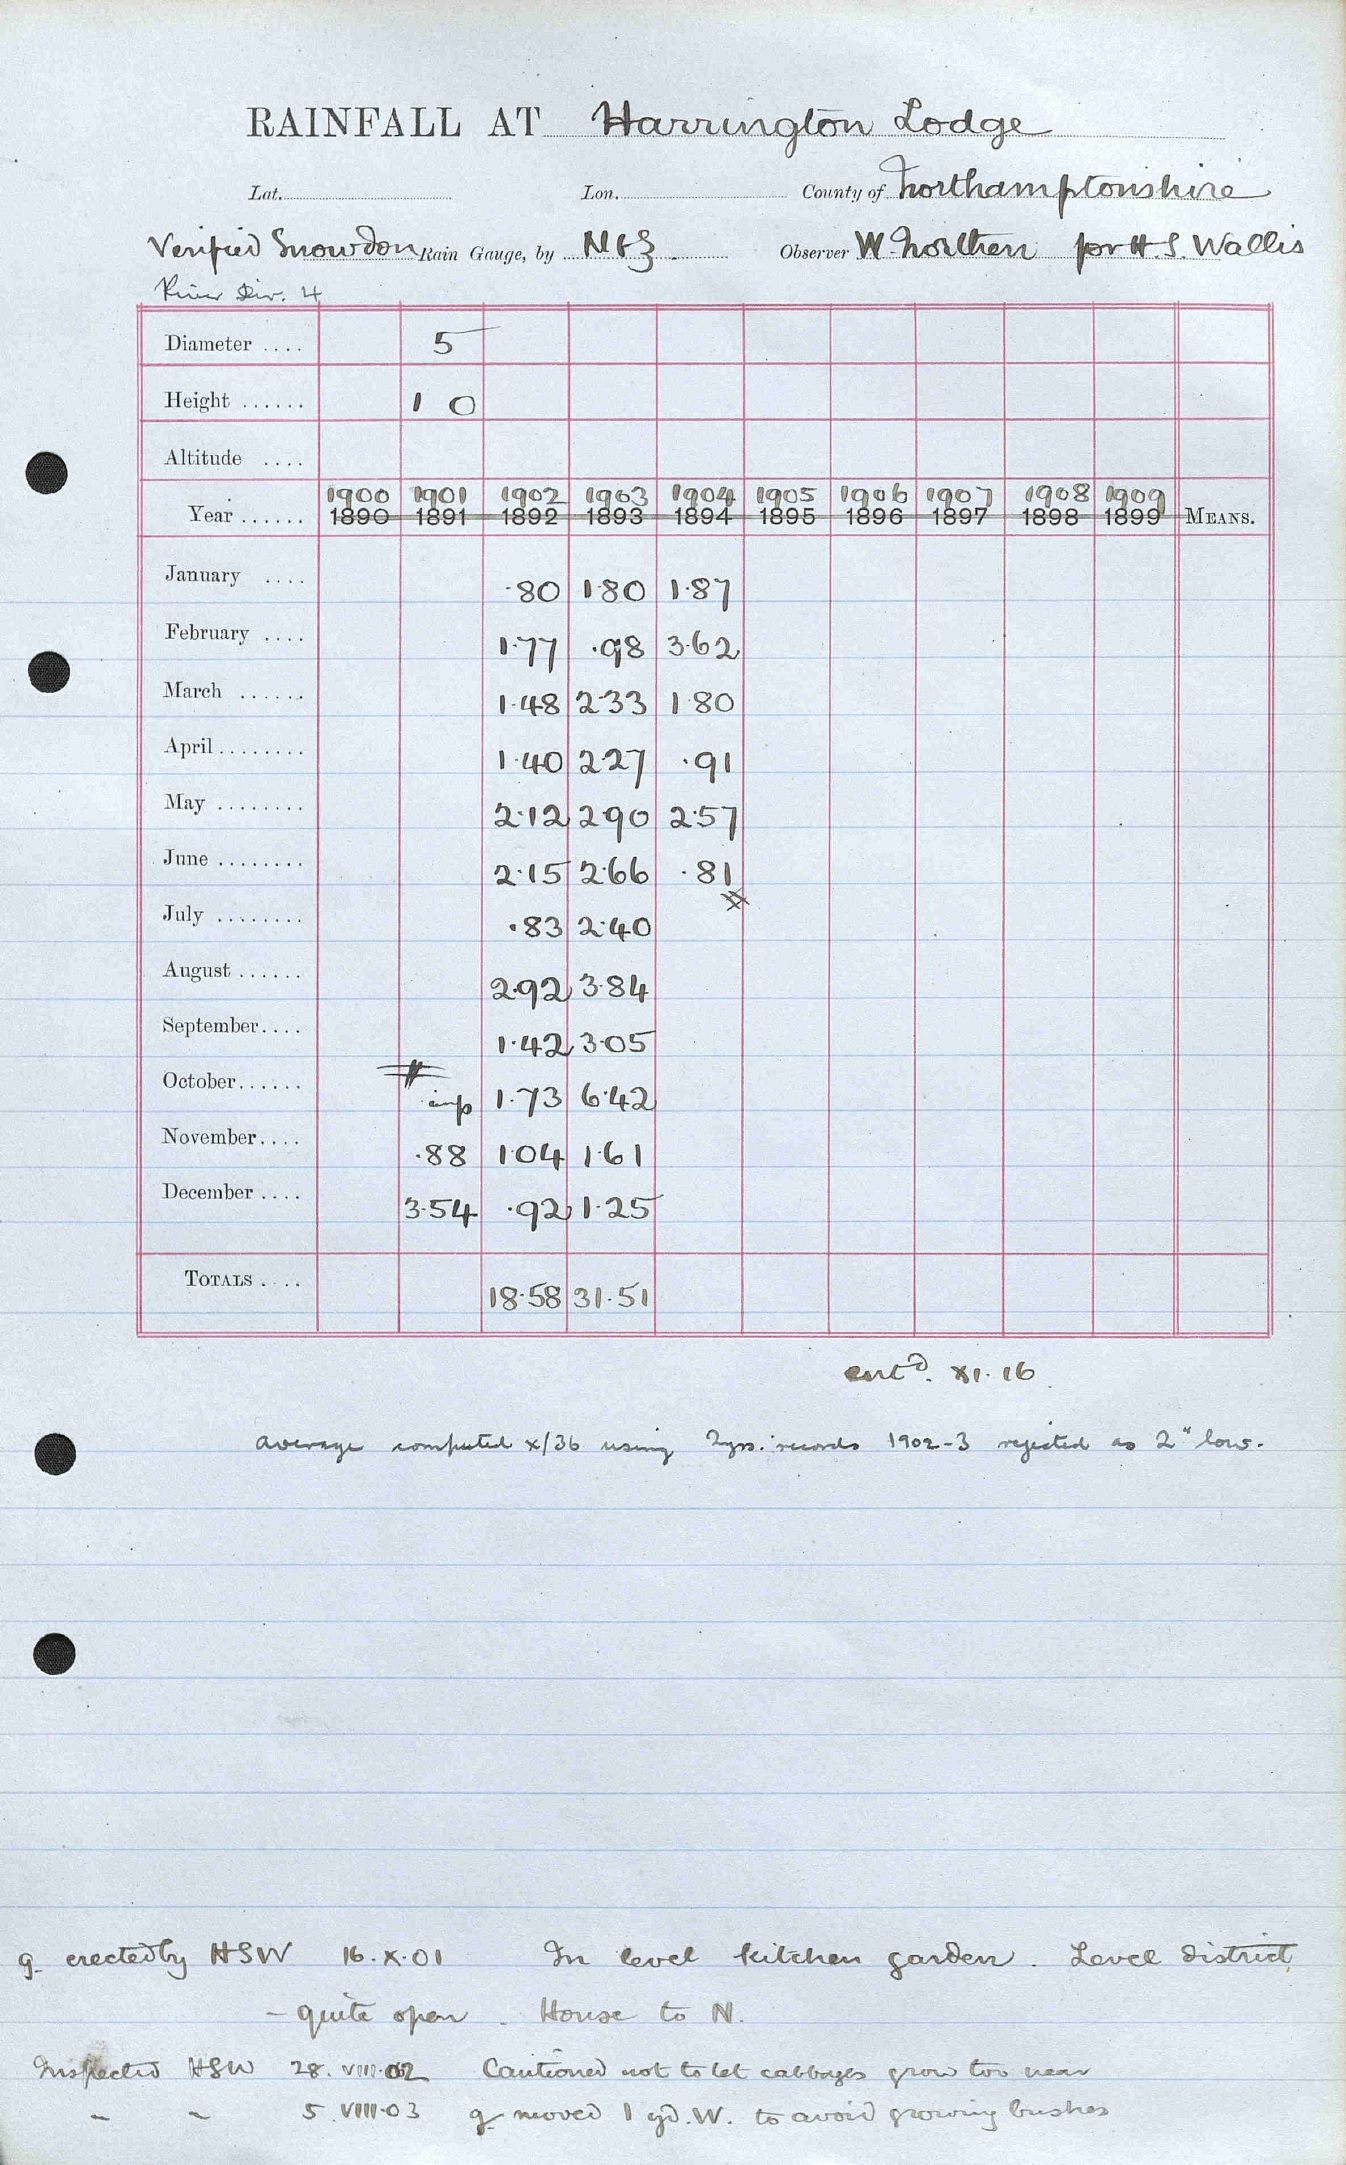 RAINFALL AT Harrington Lodge
Lat. Lon. County of Northamptonshire
Verified Snowdon Rain Gauge, by N & Z Observer W. Northen for H.S. Wallis
River Div. 4
Diameter .... 5
Height ...... 1 0
Altitude ....
1900 1901 1902 1903 1904 1905 1906 1907 1908 1909
Year ...... 1890 1891 1892 1893 1894 1895 1896 1897 1898 1899 MEANS.
January .... ·80 1·80 1·87
February .... 1·77 ·98 3·62
March ...... 1·48 2·33 1·80
April ........ 1·40 2·27 ·91
May ........ 2·12 2·90 2·57
June ........ 2·15 2·66 ·81
July ........ ·83 2·40
August ...... 2·92 3·84
September.... 1·42 3·05
October...... imp 1·73 6·42
November.... ·88 1·04 1·61
December .... 3·54 ·92 1·25
TOTALS .... 18·58 31·51
cont'd. XI·16
average computed x/36 using 2 yrs. records 1902-3 rejected as 2" low.
g erected by HSW 16.X.01 In level kitchen garden. Level district
- quite open. House to N.
Inspected HSW 28.VIII.02 Cautioned not to let cabbages grow too near
" " 5.VIII.03 g moved 1 yd. W. to avoid growing bushes